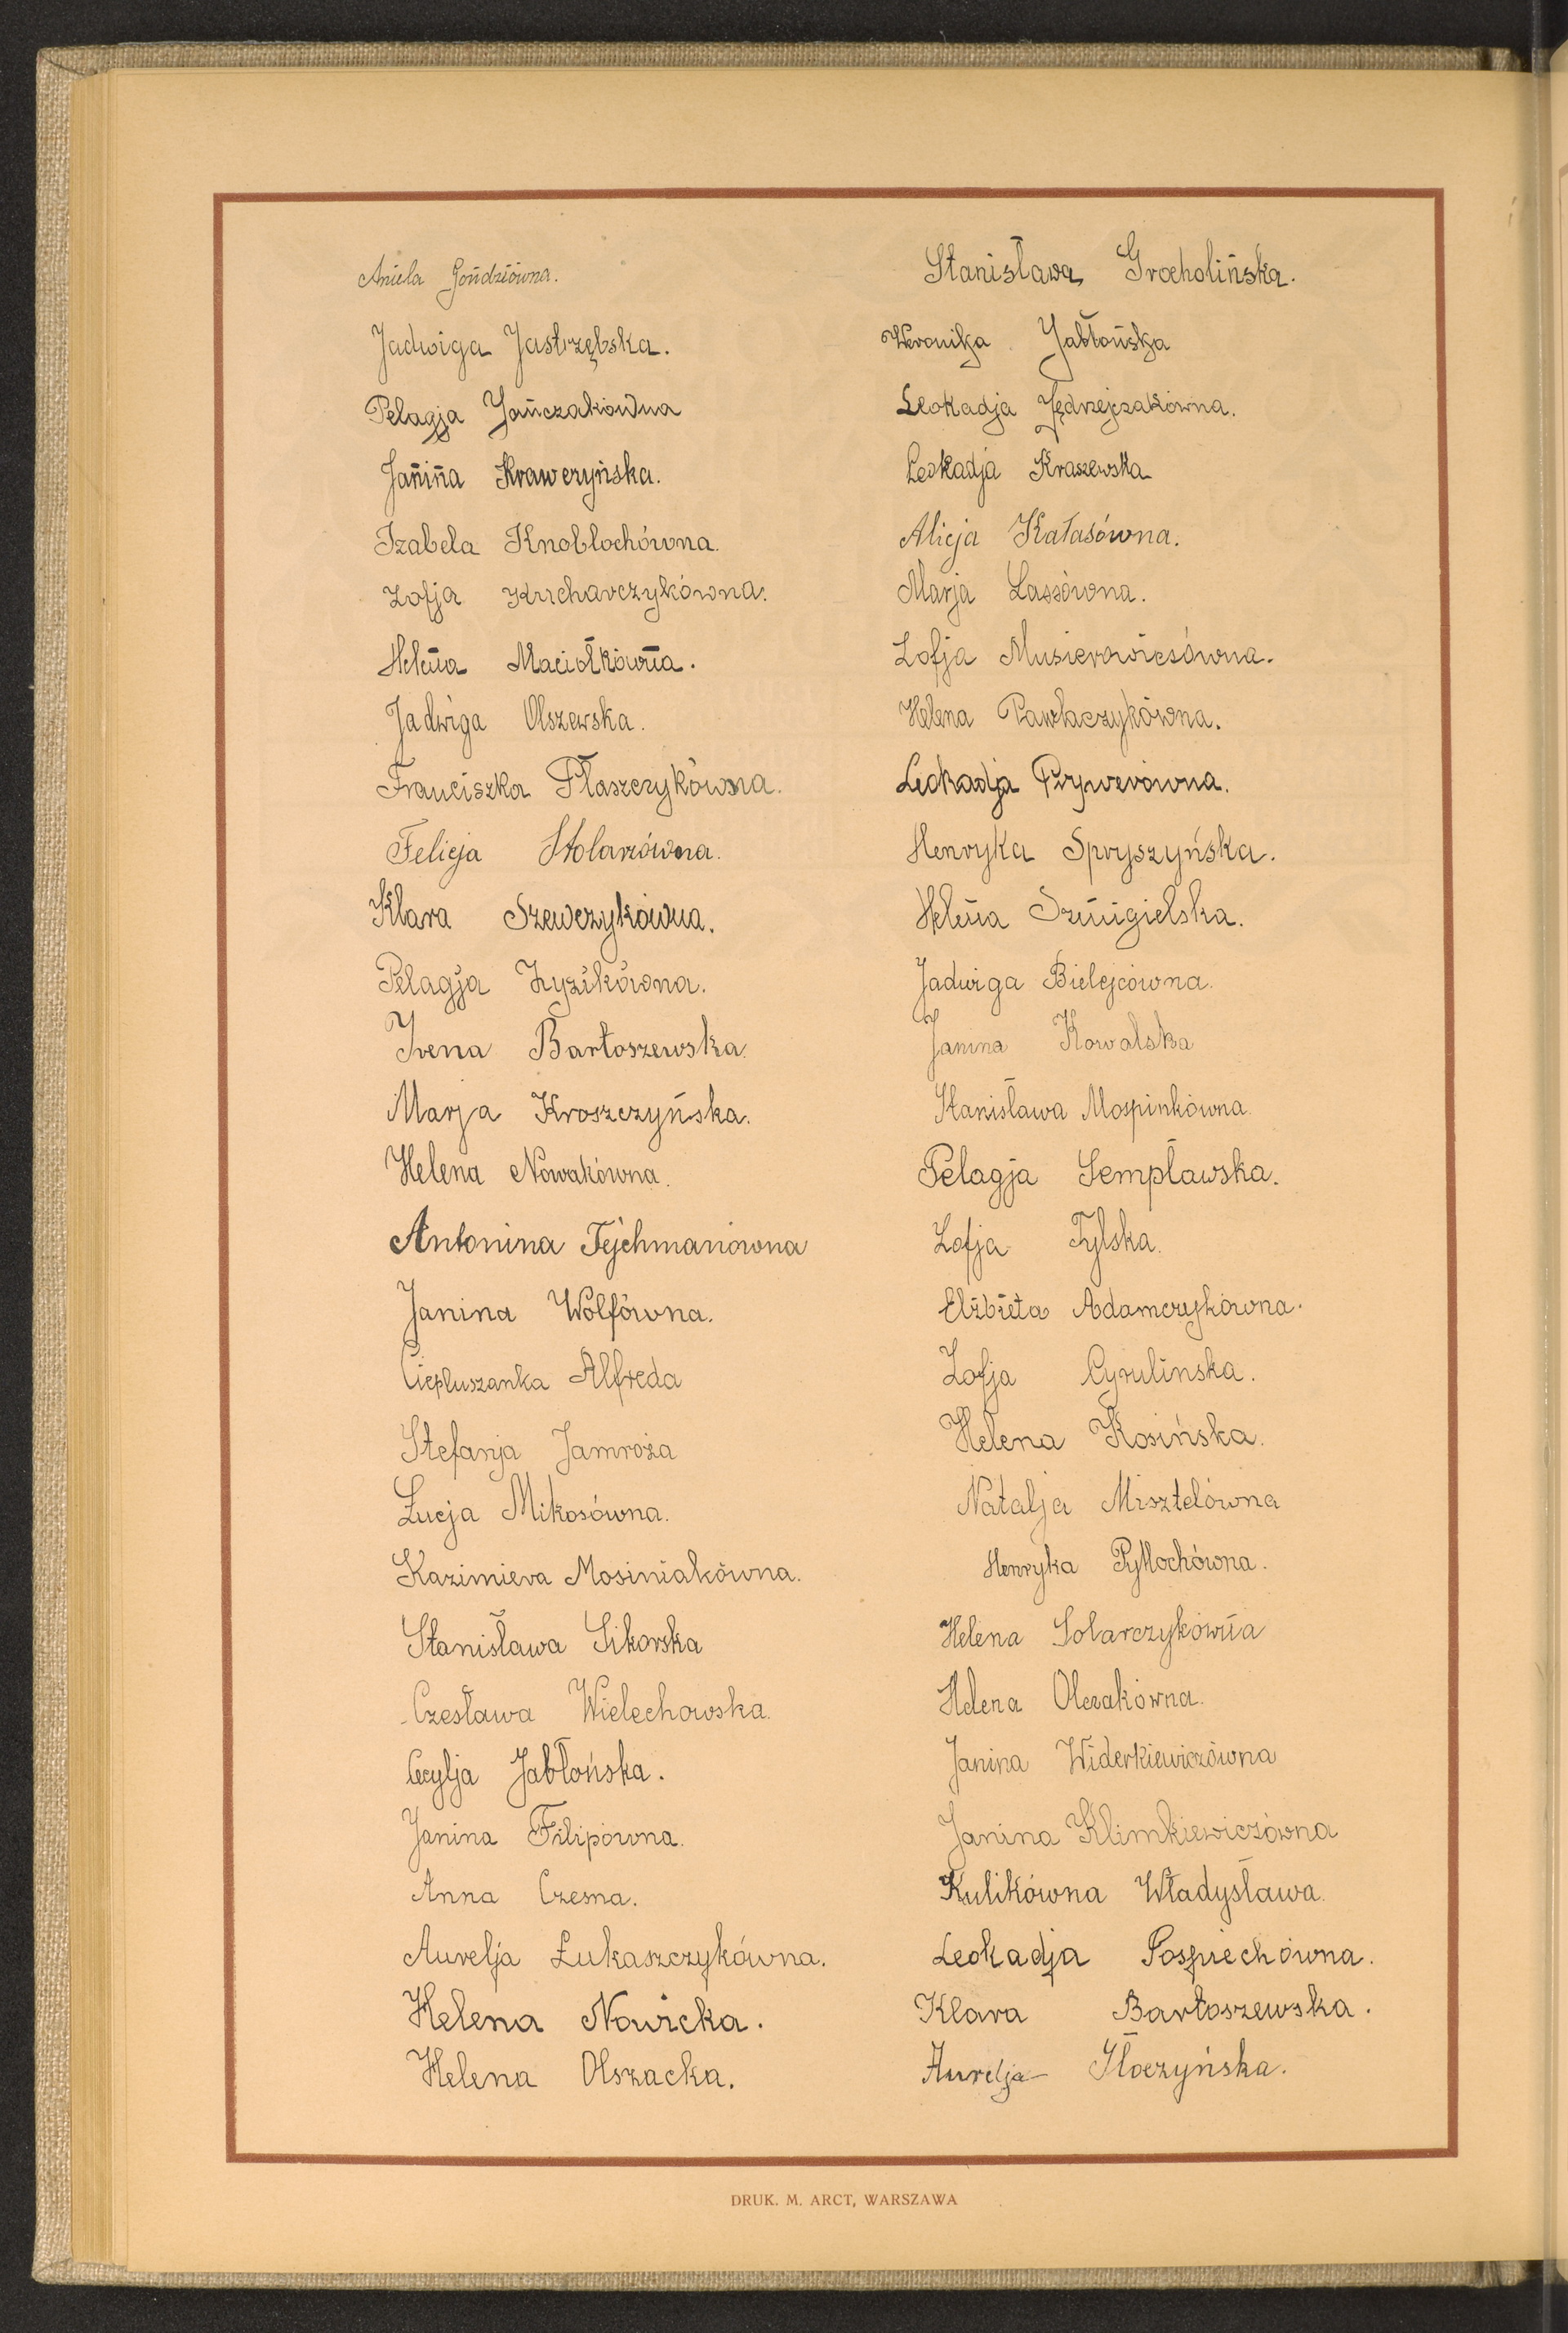 Aniela Gońdziówna.
Jadwiga Jastrzębska.
Pelagja Jańczakówna
Janina Krawczyńska.
Izabela Knoblochówna.
Zofja Kucharczykówna.
Helena Maciołkówna.
Jadwiga Olszewska.
Franciszka Płaszczykówna.
Felicja Stolarzówna.
Klara Szewczykówna.
Pelagja Zyzikówna.
Irena Bartoszewska.
Marja Kroszczyńska.
Helena Nowakówna.
Antonina Tejchmanówna
Janina Wolfówna.
Ciepluszanka Alfreda
Stefanja Jamroża
Łucja Mikosówna.
Kazimiera Mosiniakówna.
Stanisława Sikorska
Czesława Wielechowska.
Cecylja Jabłońska.
Janina Filipówna.
Anna Czesna.
Aurelja Łukaszczykówna.
Helena Nowicka.
Helena Olszacka.
Stanisława Grocholińska.
Weronika Jabłońska
Leokadja Jędrzejczakówna.
Leokadja Kraszewska
Alicja Kałasówna.
Marja Lassówna.
Zofja Musierowiczówna.
Helena Pawlaczykówna.
Leokadja Prywerówna.
Henryka Spryszyńska.
Helena Szmigielska.
Jadwiga Bielejcówna.
Janina Kowalska
Stanisława Mospinkówna.
Pelagja Sempławska.
Zofja Tylska.
Elżbieta Adamczykówna.
Zofja Cyrulinska.
Helena Kosińska.
Natalja Misztelówna
Henryka Pytlochówna.
Helena Solarczykówna
Helena Olczakówna.
Janina Widerkiewiczówna
Janina Klimkiewiczówna
Kulikówna Władysława.
Leokadja Pospiechówna.
Klara Bartoszewska.
Aurelja Tłoczyńska.
DRUK. M. ARCT, WARSZAWA